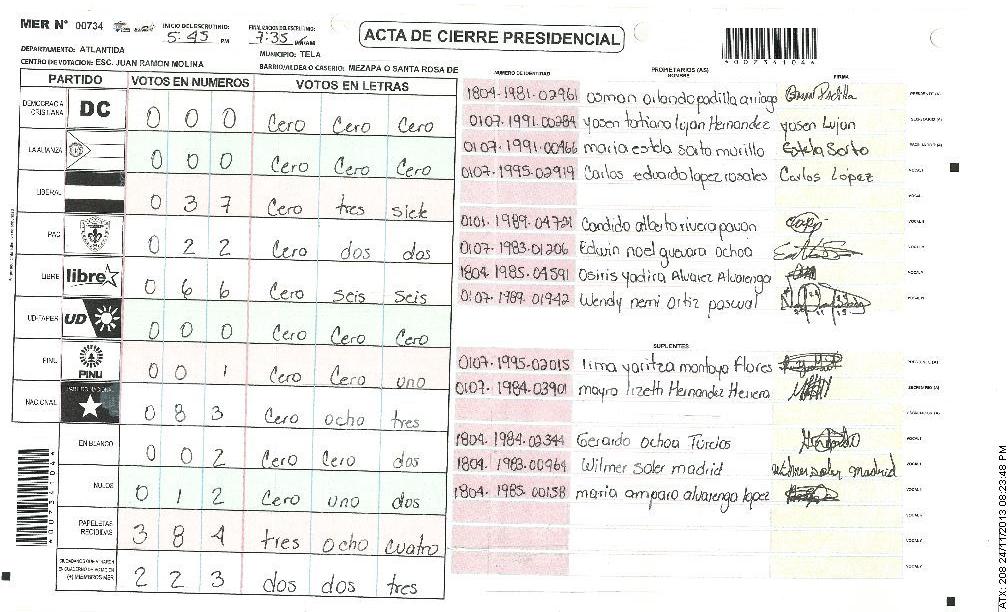 MER N° 00734
INICIO DEL ESCRUTINIO: 5:45 PM
FINALIZACION DEL ESCRUTINIO: 7:35 PM/AM
ACTA DE CIERRE PRESIDENCIAL
*00734104*
DEPARTAMENTO: ATLANTIDA
MUNICIPIO: TELA
CENTRO DE VOTACION: ESC. JUAN RAMON MOLINA
BARRIO/ALDEA O CASERIO: MEZAPA O SANTA ROSA DE
PARTIDO VOTOS EN NUMEROS VOTOS EN LETRAS
DEMOCRACIA CRISTIANA DC 0 0 0 Cero Cero Cero
LA ALIANZA 0 0 0 Cero Cero Cero
LIBERAL 0 3 7 Cero tres siete
PAC 0 2 2 Cero dos dos
LIBRE libre 0 6 6 Cero seis seis
UD-FAPER UD 0 0 0 Cero Cero Cero
PINU PINU 0 0 1 Cero Cero uno
NACIONAL 0 8 3 Cero ocho tres
EN BLANCO 0 0 2 Cero Cero dos
NULOS 0 1 2 Cero uno dos
PAPELETAS RECIBIDAS 3 8 4 tres ocho cuatro
(+) MIEMBROS MER 2 2 3 dos dos tres
*00734104*
NUMERO DE IDENTIDAD PROPIETARIOS (AS) NOMBRE FIRMA
1804-1981-02961 Osman orlando padilla arriaga
0107-1991-00284 yosen tatiana lujan Hernandez yosen Lujan
0107-1991-00466 maria estela sorto murillo Estela Sorto
0107-1995-02919 Carlos eduardo lopez rosales Carlos López
0101-1989-04721 Candido alberto rivera pavon
0107-1983-01206 Edwin noel guevara ochoa
1804-1985-04591 Osiris yadira Alvarez Alvarenga
0107-1989-01942 Wendy nemi ortiz pascual
SUPLENTES
0107-1995-02015 lima yaritza montoya Flores
0107-1984-03901 mayra lizeth Hernandez Herrera
1804-1984-02344 Gerardo Ochoa Turcios
1804-1983-00964 Wilmer soler madrid wilmer soler madrid
1804-1985-00158 maria amparo alvarenga lopez
ATX: 208 24/11/2013 08:23:48 PM